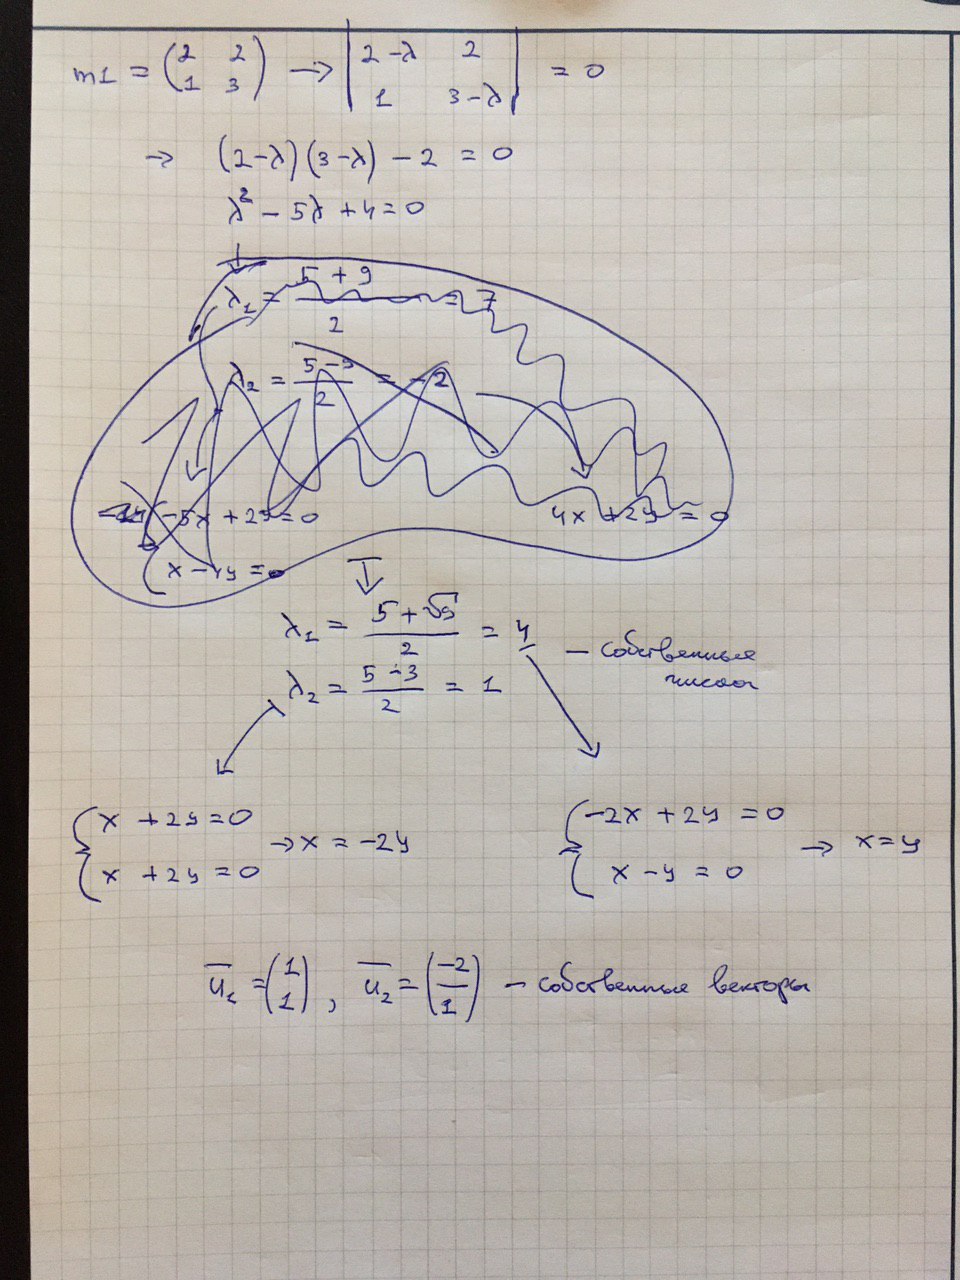 m1 = (2 2; 1 3) → |2-λ 2; 1 3-λ| = 0
→ (2-λ)(3-λ) - 2 = 0
λ² - 5λ + 4 = 0
λ₁ = (5 + 9)/2 = 7
λ₂ = (5 - 9)/2 = -2
-5x + 2y = 0
4x + 2y = 0
x - 4y = 0
λ₁ = (5 + √9)/2 = 4
- собственные числа
λ₂ = (5 - 3)/2 = 1
{x + 2y = 0
x + 2y = 0 → x = -2y
{-2x + 2y = 0
x - y = 0 → x = y
u₁ = (1; 1), u₂ = (-2; 1) - собственные векторы